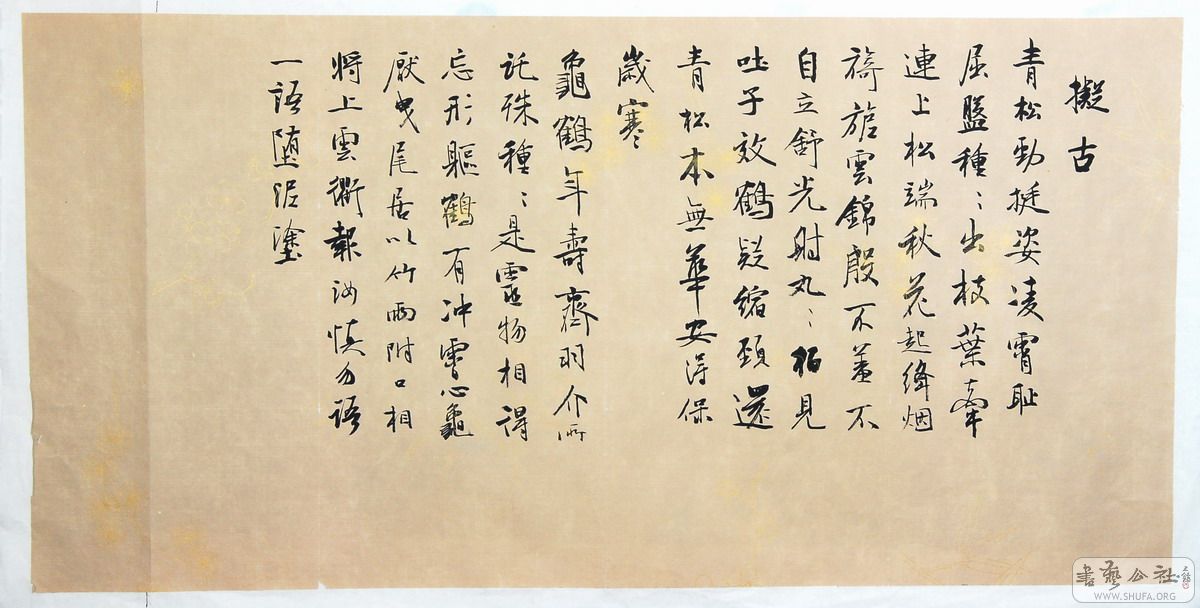 擬古
青松勁挺姿凌霄恥
屈盤種〻出枝葉牽
連上松端秋花起絳烟
旖旎雲錦殷不羞不
自立舒光射丸〻柏見
吐子效鶴疑縮頸還
青松本無華安得保
歲寒
龜鶴年壽齊羽介所
託殊種〻是靈物相得
忘形軀鶴有沖霄心龜
厭曳尾居以竹兩附口相
將上雲衢報汝慎勿語
一語墮泥塗
書藝公社
WWW.SHUFA.ORG